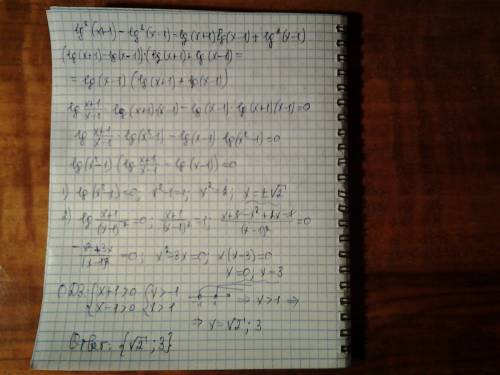 lg²(x+1) - lg²(x-1) = lg(x+1) lg(x-1) + lg²(x-1)
(lg(x+1) - lg(x-1))·(lg(x+1) + lg(x-1)) =
= lg(x-1) (lg(x+1) + lg(x-1))
lg (x+1)/(x-1) · lg(x+1)(x-1) - lg(x-1)·lg(x+1)(x-1) = 0
lg (x+1)/(x-1) · lg(x²-1) - lg(x-1) lg(x²-1) = 0
lg(x²-1) (lg (x+1)/(x-1) - lg(x-1)) = 0
1) lg(x²-1) = 0; x²-1=1; x²=2; x=±√2
2) lg (x+1)/(x-1)² = 0; (x+1)/(x-1)² = 1; (x+1-x²+2x-1)/(x-1)² = 0
(-x²+3x)/(x-1)² = 0; x²-3x=0; x(x-3)=0
x=0, x=3
ОДЗ: { x+1>0 { x>-1 ⇒ x>1 ⇒
{ x-1>0 { x>1
⇒ x=√2; 3
Ответ: {√2; 3}